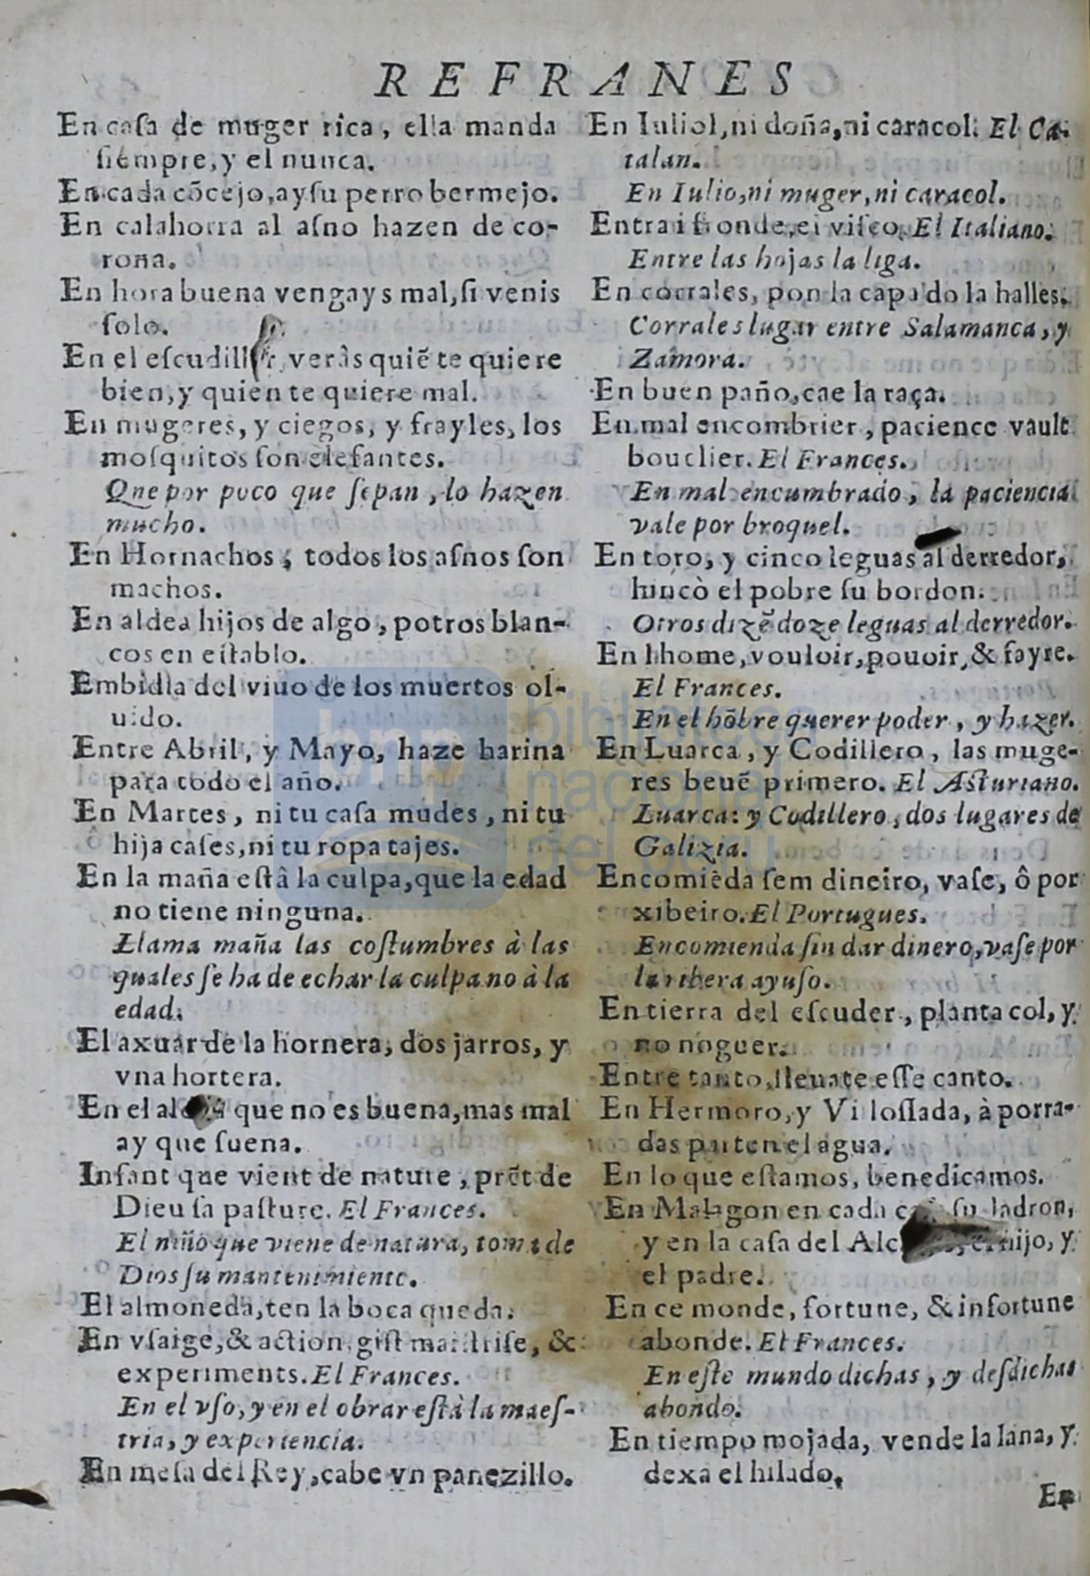 REFRANES
En casa de muger rica, ella manda
siempre, y el nunca.
En cada cõcejo, ay su perro bermejo.
En calahorra al asno hazen de co-
rona.
En hora buena vengays mal, si venis
solo.
En el escudillar veràs quiẽ te quiere
bien, y quien te quiere mal.
En mugeres, y ciegos, y frayles, los
mosquitos son elefantes.
Que por poco que sepan, lo hazen
mucho.
En Hornachos, todos los asnos son
machos.
En aldea hijos de algo, potros blan-
cos en establo.
Embidia del viuo de los muertos ol-
uido.
Entre Abril, y Mayo, haze harina
para todo el año.
En Martes, ni tu casa mudes, ni tu
hija cases, ni tu ropa tajes.
En la maña està la culpa, que la edad
no tiene ninguna.
Llama maña las costumbres à las
quales se ha de echar la culpa no à la
edad.
El axuar de la hornera, dos jarros, y
vna hortera.
En el que no es buena, mas mal
ay que suena.
Infant que vient de nature, prẽt de
Dieu sa pasture. El Frances.
El niño que viene de natura, toma de
Dios su mantenimiento.
El almoneda, ten la boca queda.
En vsaige, & action, gist maistrise, &
experiments. El Frances.
En el vso, y en el obrar està la maes-
tria, y experiencia.
En mesa del Rey, cabe vn panezillo.
En Iuliol, ni doña, ni caracol. El Ca-
talan.
En Iulio, ni muger, ni caracol.
Entra i fronde, ei visco. El Italiano.
Entre las hojas la liga.
En corrales, pon la capa do la halles.
Corrales lugar entre Salamanca, y
Zamora.
En buen paño, cae la raça.
En mal encombrier, pacience vault
bouclier. El Frances.
En mal encumbrado, la paciencia
vale por broquel.
En toro, y cinco leguas al derredor,
hincò el pobre su bordon.
Otros dizẽ doze leguas al derredor.
En lhome, vouloir, pouoir, & fayre.
El Frances.
En el hõbre querer poder, y hazer.
En Luarca, y Codillero, las muge-
res beuẽ primero. El Asturiano.
Luarca: y Codillero, dos lugares de
Galizia.
Encomiẽda sem dineiro, vase, ô por
xibeiro. El Portugues.
Encomienda sin dar dinero, vase por
la ribera ayuso.
En tierra del escuder, planta col, y
no noguer.
Entre tanto, lleuate esse canto.
En Hermoro, y Villoslada, à porra-
das parten el agua.
En lo que estamos, benedicamos.
En Malagon en cada su ladron,
y en la casa del hijo, y
el padre.
En ce monde, fortune, & infortune
abonde. El Frances.
En este mundo dichas, y desdichas
abondo.
En tiempo mojada, vende la lana, y
dexa el hilado.
En